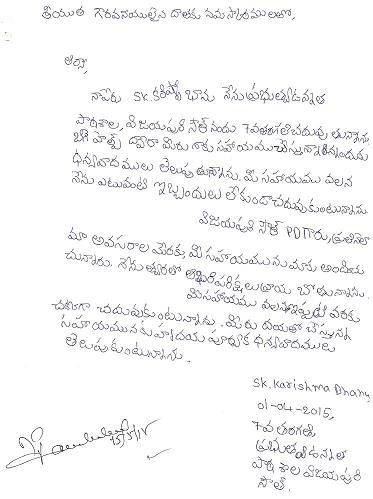 శ్రీయుత గౌరవనీయులైన దాతకు నమస్కారములతో,
ఆర్యా,
నాపేరు SK. కరిష్మా భాను నేను ప్రభుత్వఉన్నత
పాఠశాల, విజయపురి సౌత్ నందు 7వతరగతి చదువు తున్నాను.
ద్వారా మీరు నాకు సహాయము చేస్తున్నారు
ధన్యవాదములు తెలుపు తున్నాను. మీ సహాయము వలన
నేను ఎటువంటి ఇబ్బందులు లేకుండా చదువుకుంటున్నాను
విజయపురి సౌత్ PDగారు,
మా అవసరాల మేరకు, మీ సహాయమును మాకు అందచే
చున్నారు. నేను త్వరలో పరీక్షలు వ్రాయ బోతున్నాను.
మీసహాయము వలన ఇప్పటి వరకు
చక్కగా చదువుకుంటున్నాను. మీరు దయతో చేస్తున్న
సహాయమునకు హృదయ పూర్వక ధన్యవాదములు
తెలుపుకుంటున్నాను.
SK. Karishma Bhanu,
01-04-2015,
7వ తరగతి,
ప్రభుత్వఉన్నత
పాఠశాల విజయపురి
సౌత్.